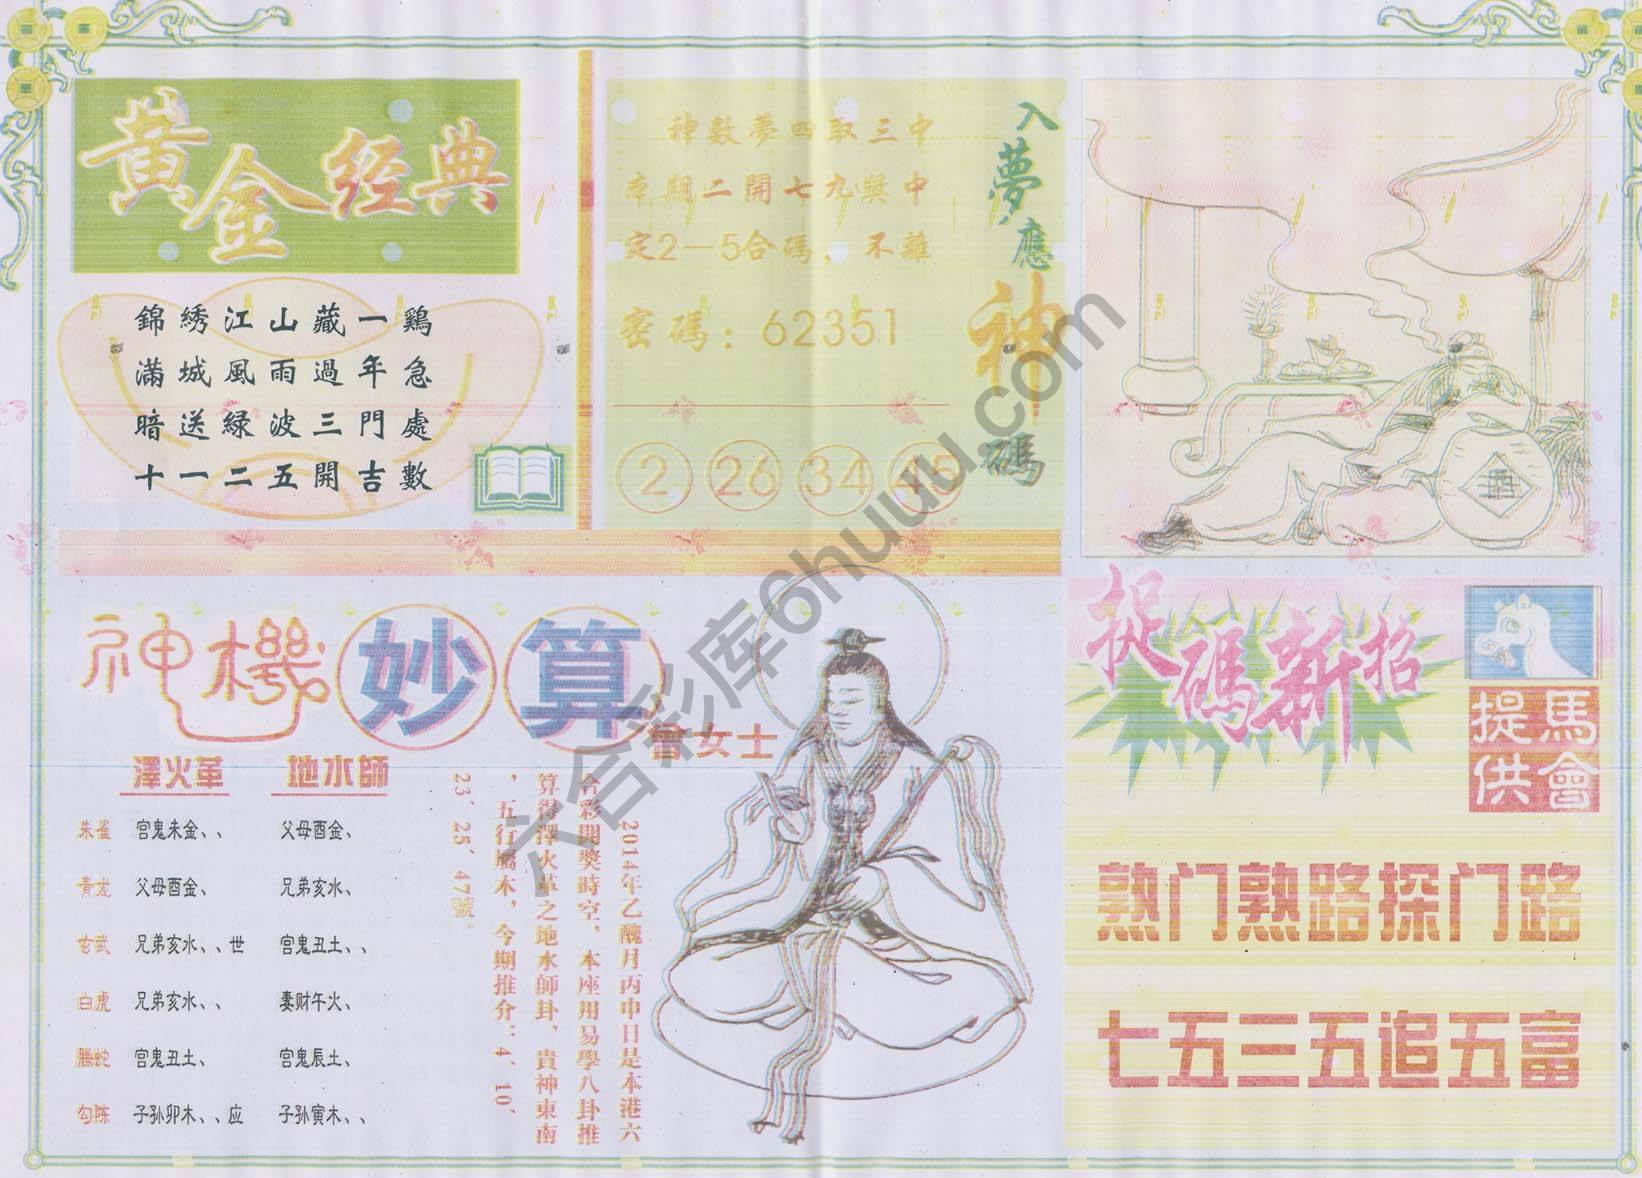 黄金经典
錦綉江山藏一鷄
滿城風雨過年急
暗送緑波三門處
十一二五開吉數
神數夢四取三中
本期二開七九獎中
定2—5合碼，不離
密碼：62351
2 26 34 45
入夢應神碼
酒
神機妙算
曾女士
澤火革 地水師
朱雀 官鬼未金、、 父母酉金、
青龙 父母酉金、 兄弟亥水、
玄武 兄弟亥水、、世 官鬼丑土、、
白虎 兄弟亥水、、 妻财午火、
騰蛇 官鬼丑土、 官鬼辰土、
勾陈 子孙卯木、、应 子孙寅木、、
2014年乙醜月丙申日是本港六
合彩開獎時空，本座用易學八卦推
算得澤火革之地水師卦，貴神東南
，五行屬木，今期推介：4、10、
23、25、47號。
捉碼新招
馬會提供
熟门熟路探门路
七五三五追五富
六合彩库6huuu.com